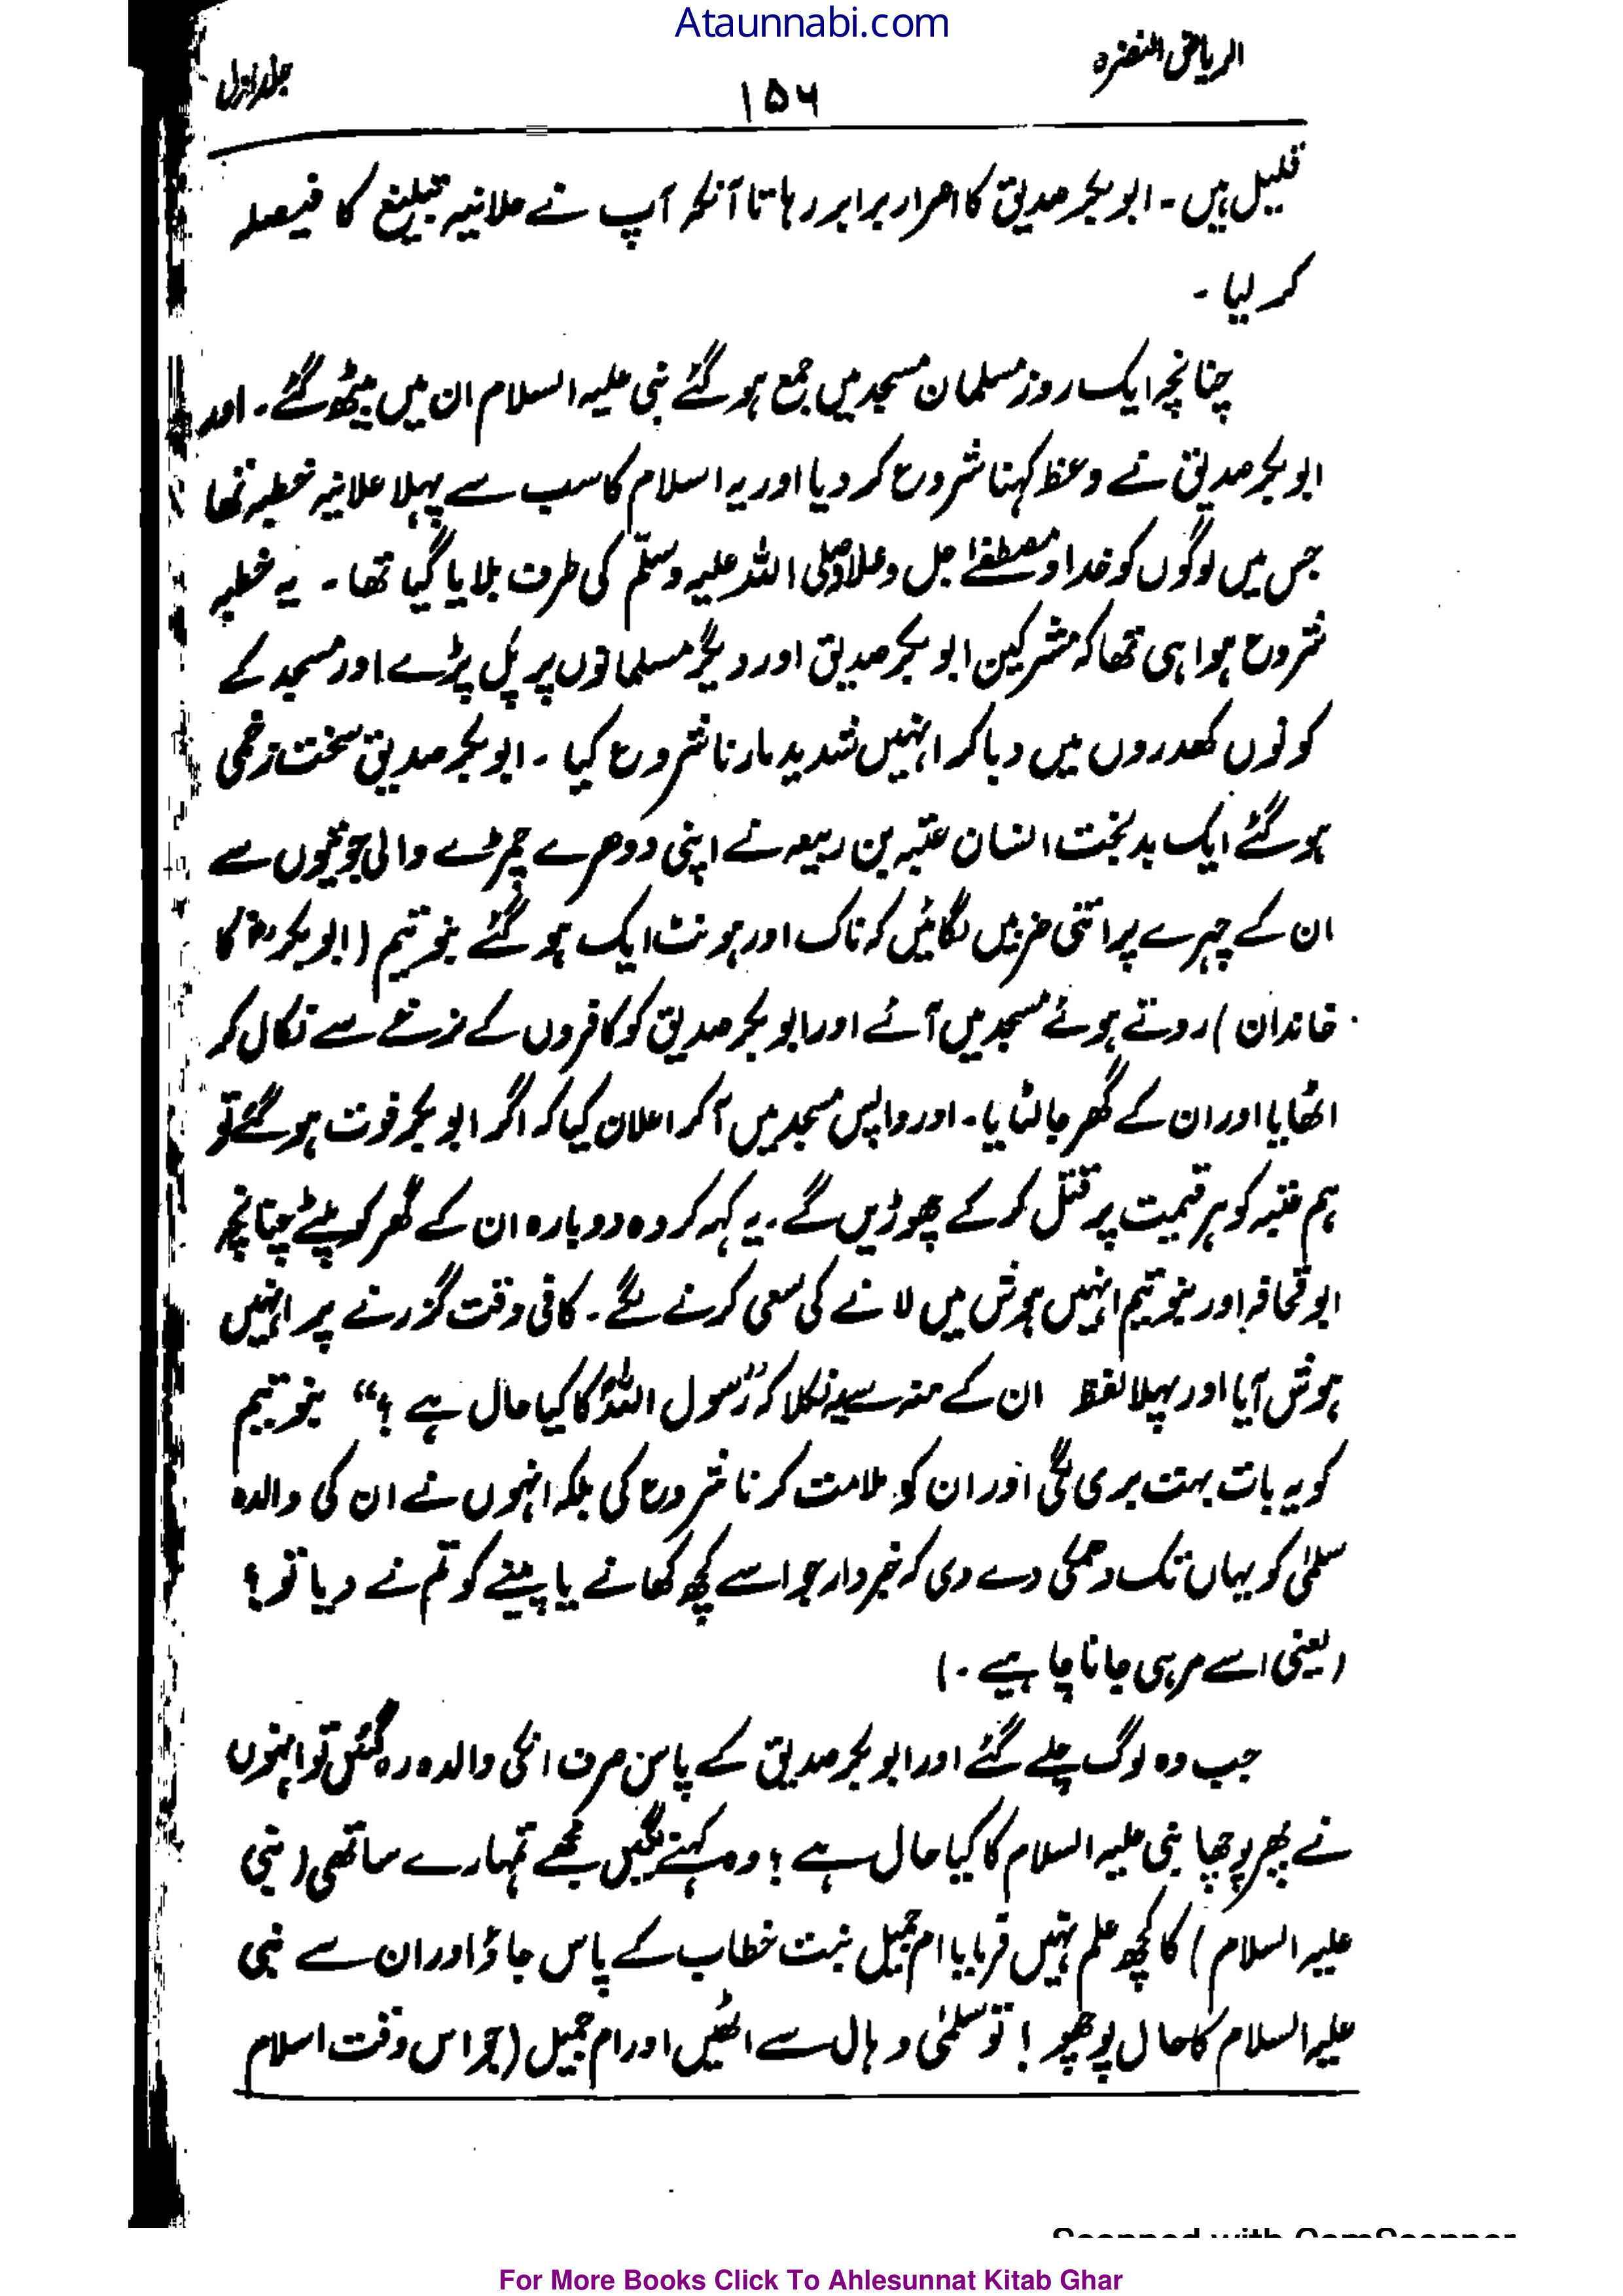 Ataunnabi.com
الریاض النضرہ
۱۵۶
جلد اول
قلیل ہیں ۔ ابو بکر صدیق کا اصرار برابر رہا تا آنکہ آپ نے علانیہ تبلیغ کا فیصلہ
کر لیا ۔
چنانچہ ایک روز مسلمان مسجد میں جمع ہو گئے نبی علیہ السلام ان میں بیٹھ گئے ۔ اور
ابو بکر صدیق نے وعظ کہنا شروع کر دیا اور یہ اسلام کا سب سے پہلا علانیہ خطبہ تھا
جس میں لوگوں کو خدا و مصطفےٰ جل و علا و صلی اللہ علیہ وسلّم کی طرف بلایا گیا تھا ۔ یہ خطبہ
شروع ہوا ہی تھا کہ مشرکین ابو بکر صدیق اور دیگر مسلمانوں پر پل پڑے اور مسجد کے
کونوں کھدروں میں دبا کر انہیں شدید مارنا شروع کیا ۔ ابو بکر صدیق سخت زخمی
ہو گئے ایک بد بخت انسان عتبہ بن ربیعہ نے اپنی دوھرے چمڑے والی جوتیوں سے
ان کے چہرے پر اتنی ضربیں لگائیں کہ ناک اور ہونٹ ایک ہو گئے بنو تیم (ابو بکرؓ کا
خاندان) روتے ہوئے مسجد میں آئے اور ابو بکر صدیق کو کافروں کے نرغے سے نکال کر
اٹھایا اور ان کے گھر جا لٹایا ۔ اور واپس مسجد میں آ کر اعلان کیا کہ اگر ابو بکر فوت ہو گئے تو
ہم عتبہ کو ہر قیمت پر قتل کر کے چھوڑیں گے ۔ یہ کہہ کر وہ دوبارہ ان کے گھر کو پلٹے چنانچہ
ابو قحافہ اور بنو تیم انہیں ہوش میں لانے کی سعی کرنے لگے ۔ کافی وقت گزرنے پر انہیں
ہوش آیا اور پہلا لفظ ان کے منہ سے یہ نکلا کہ ”رسول اللہؐ کا کیا حال ہے ؟“ بنو تیم
کو یہ بات بہت بری لگی اور ان کو ملامت کرنا شروع کی بلکہ انہوں نے ان کی والدہ
سلمٰی کو یہاں تک دھمکی دے دی کہ خبردار جو اسے کچھ کھانے یا پینے کو تم نے دیا تو ؟
(یعنی اسے مر ہی جانا چاہیے ۔)
جب وہ لوگ چلے گئے اور ابو بکر صدیق کے پاس صرف انکی والدہ رہ گئیں تو انہوں
نے پھر پوچھا نبی علیہ السلام کا کیا حال ہے ؟ وہ کہنے لگیں مجھے تمہارے ساتھی (نبی
علیہ السلام) کا کچھ علم نہیں فرمایا ام جمیل بنت خطاب کے پاس جاؤ اور ان سے نبی
علیہ السلام کا حال پوچھو ! تو سلمٰی وہاں سے اٹھیں اور ام جمیل (جو اس وقت اسلام
Scanned with CamScanner
For More Books Click To Ahlesunnat Kitab Ghar